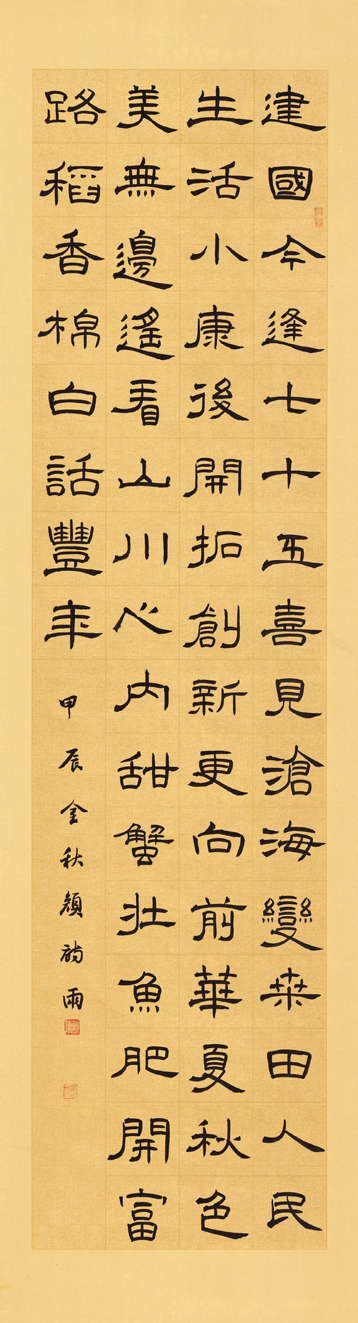 建國今逢七十五喜見滄海變桒田人民
生活小康後開拓創新更向前華夏秋色
美無邊遙看山川心內甜蟹壯魚肥開富
路稻香棉白話豐年
甲辰金秋顏雨